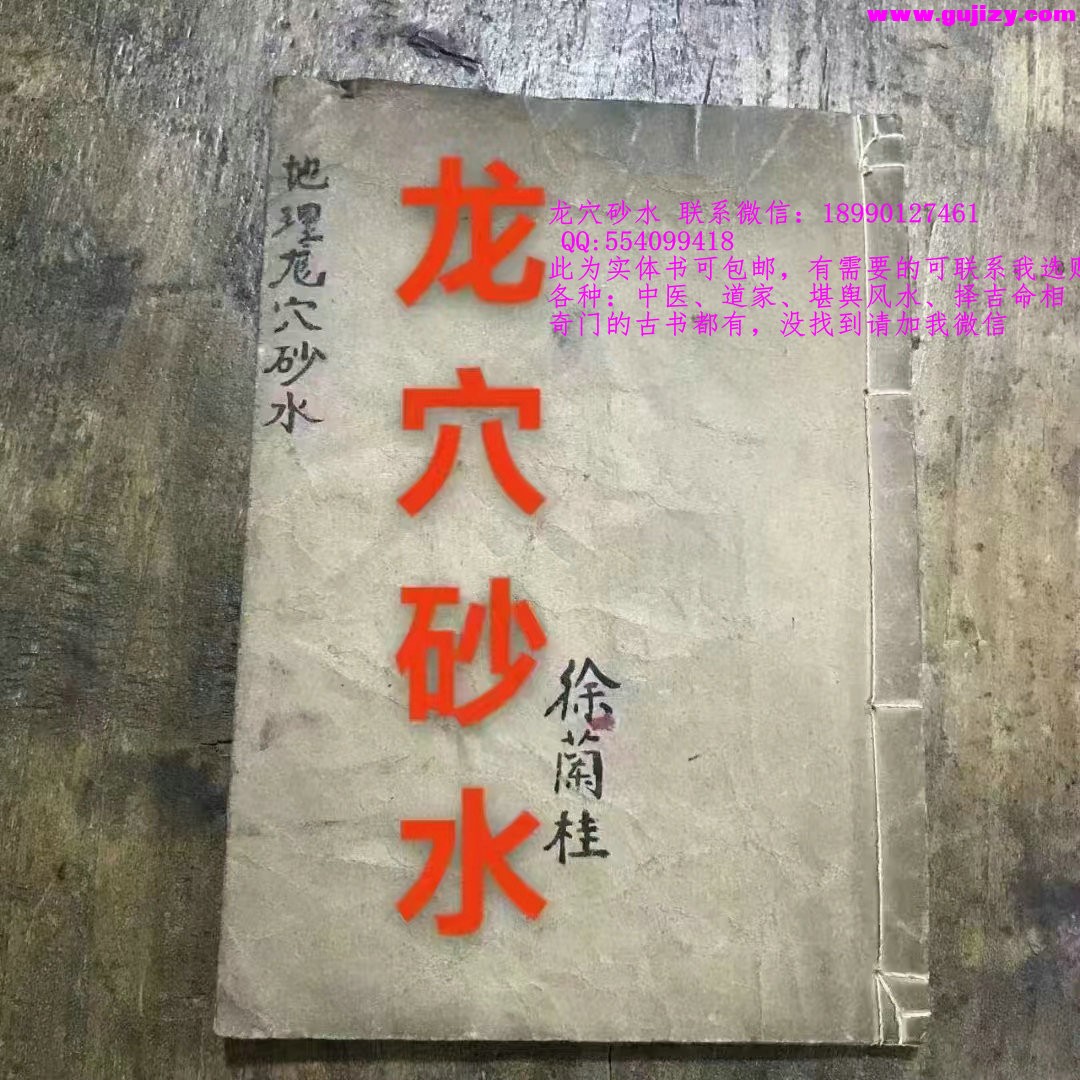 www.gujizy.com
地理龙穴砂水
龙穴砂水
龙穴砂水 联系微信：18990127461
QQ:554099418
此为实体书可包邮，有需要的可联系我选购
各种；中医、道家、堪舆风水、择吉命相
奇门的古书都有，没找到请加我微信
徐蘭桂